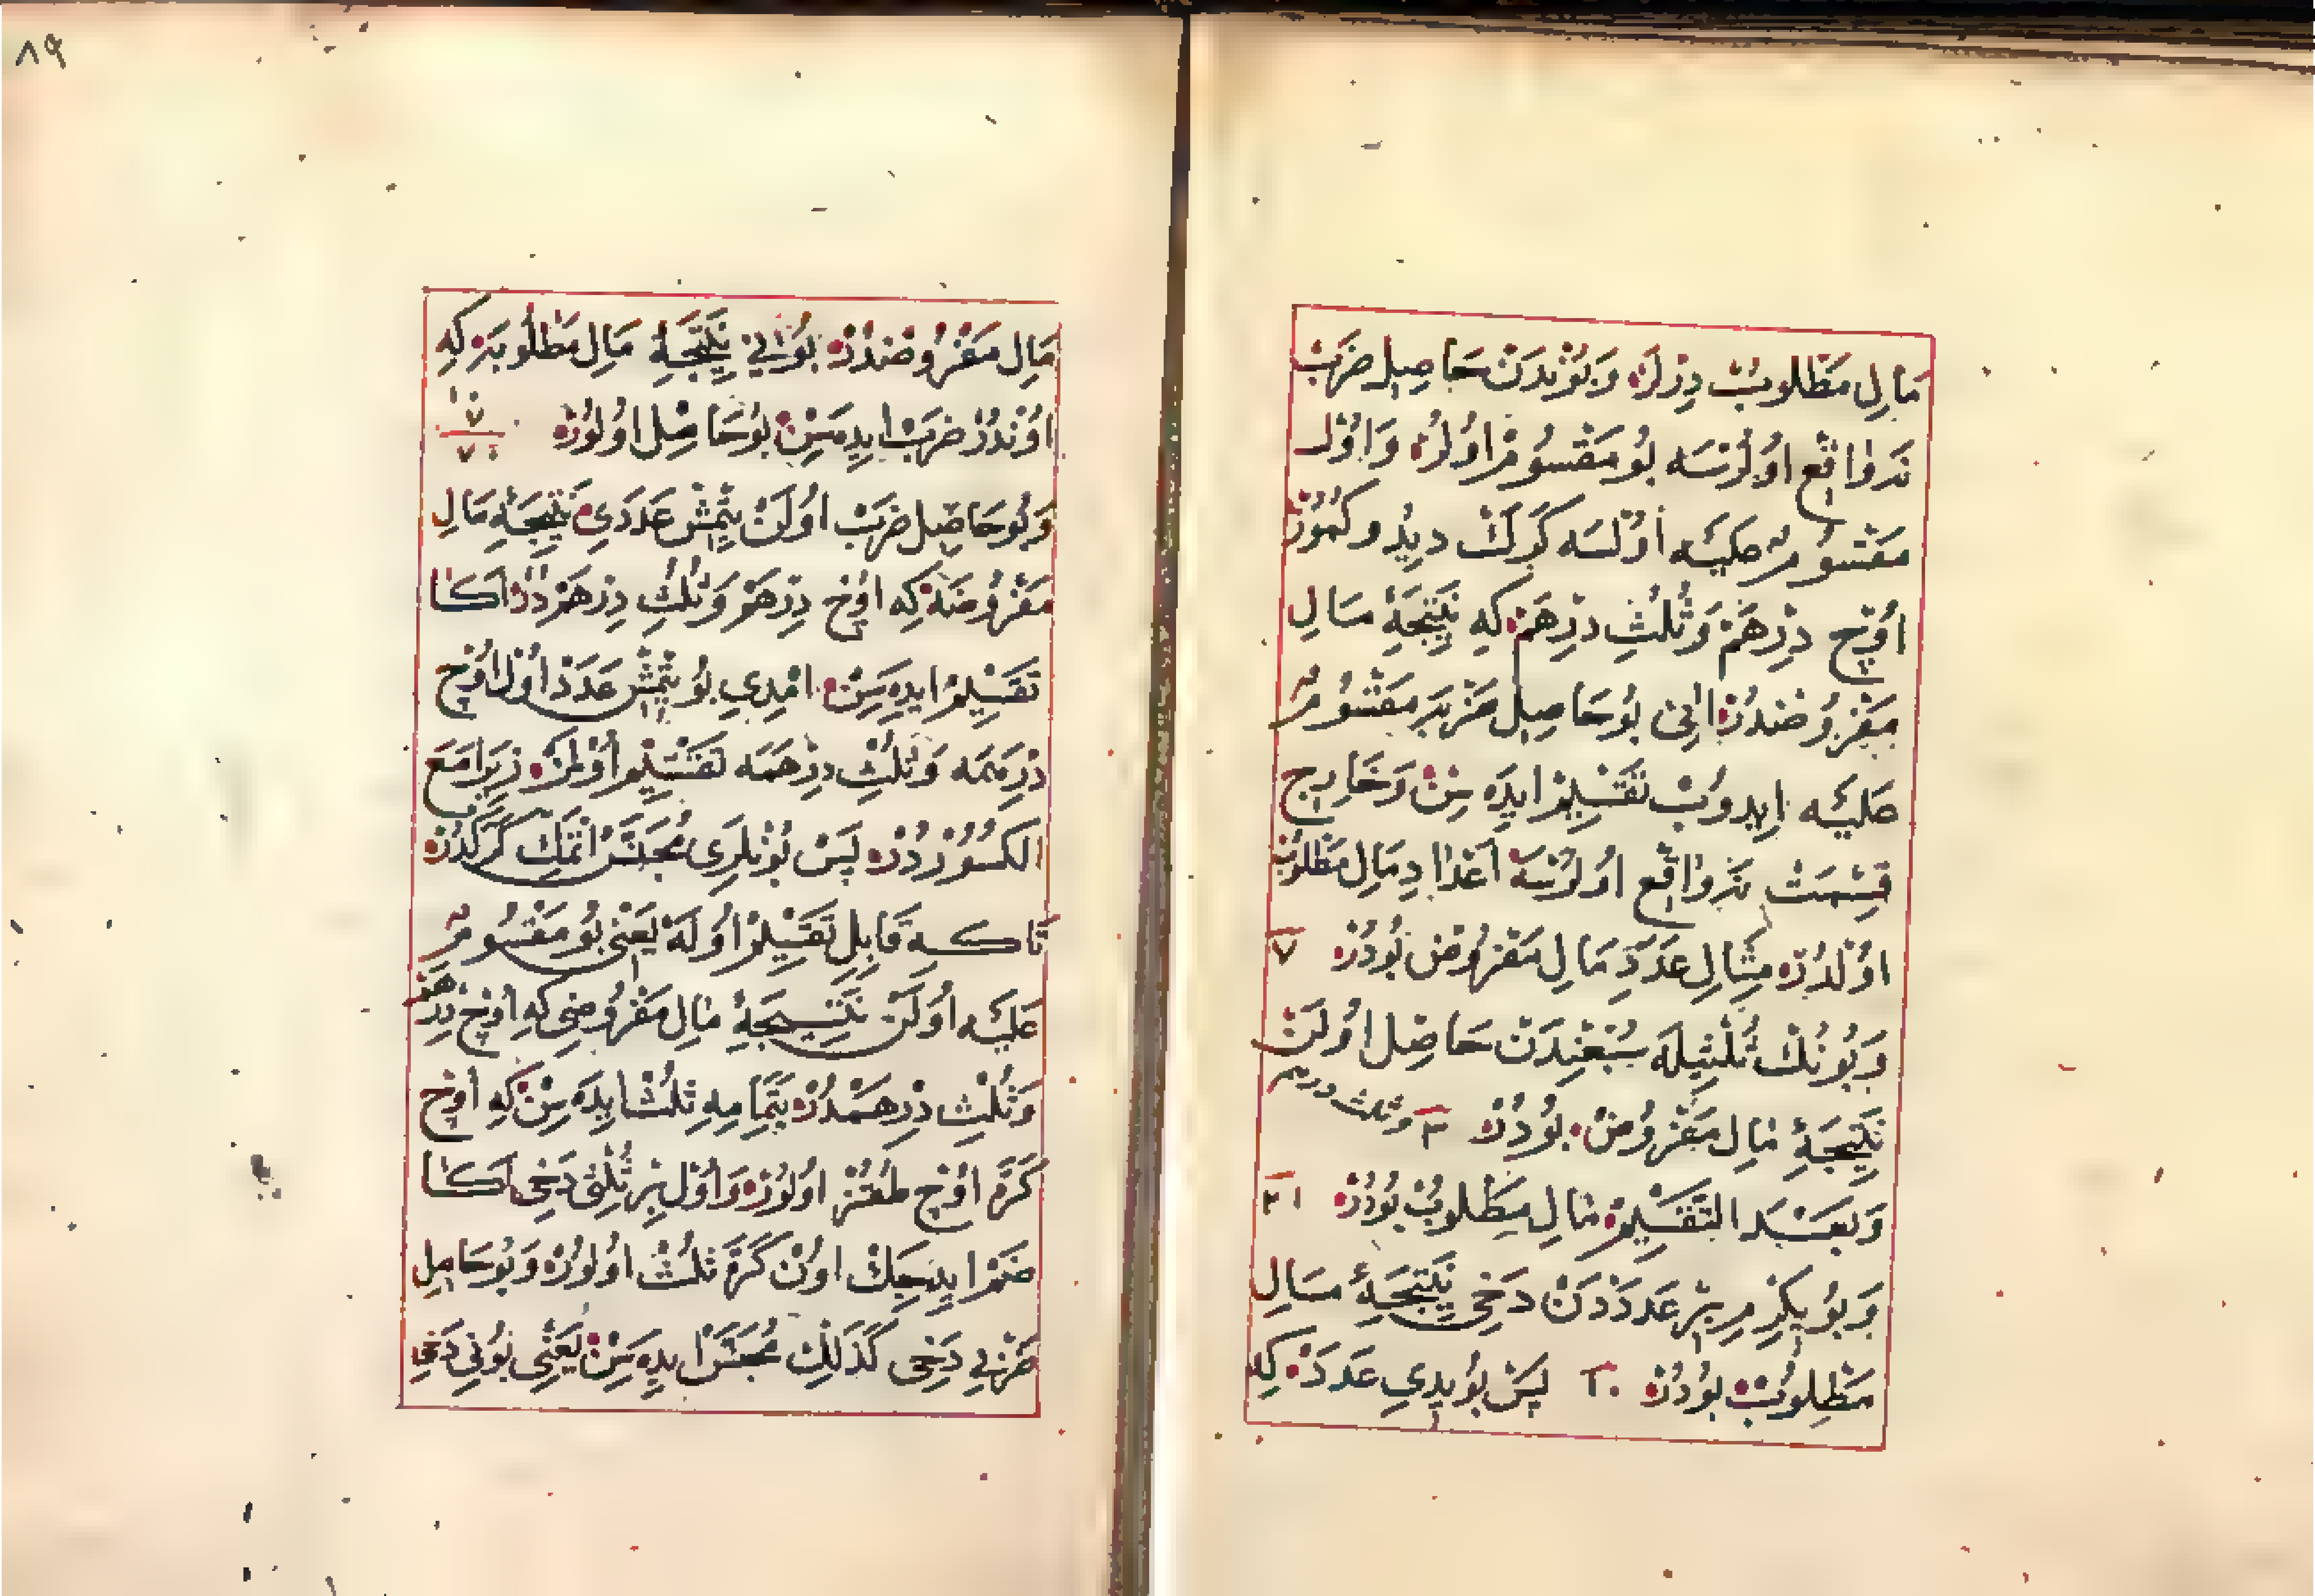 مَالِ مَطْلُوبْ دِرْلَرْ وَبُوْنْدَنْ حَاصِلِ ضَرَبْ
نَه وَاقِعْ اوُلُرْسَه بُو مَقْسُومْ اوُلُرْ وَاوُّلْ
مَقْسُومٌ عَلَيْه اوُلْسَه كَرَكْ
اوُچْ دِرْهَمْ وَثُلْثِ دِرْهَمْ كِه نَتِيجَۀِ مَالِ
مَفْرُوضْدُرْ انِى بُو حَاصِلِ ضَرْبَه مَقْسُومٌ
عَلَيْه اِيدُوبْ تَقْسِيمْ ايدَه سِنْ وَخَارِجِ
قِسْمَتْ نَه وَاقِعْ اوُلُرْسَه اَعْدَادِ مَالِ مَطْلُوبْ
اوُلْدُرْ مِثَالِ عَدَدِ مَالِ مَفْرُوضْ بُودُرْ ٧
وَبُونُكْ ثُلْثِيلَه سُبْعِنْدَنْ حَاصِلْ اوُلَنْ
نَتِيجَۀِ مَالِ مَفْرُوضْ بُودُرْ ٣ وثلث درهم
وَبَعْدَ التَّقْسِيمْ مَالِ مَطْلُوبْ بُودُرْ ٢١
وَبُو يِكِرْمِ بِرْ عَدَدْدَنْ دَخِى نَتِيجَۀِ مَالِ
مَطْلُوبْ بُودُرْ ١٠ پَسْ بُو يِدِى عَدَدْ كِه
٨٩
مَالِ مَفْرُوضْدُرْ بُوْنِى نَتِيجَۀِ مَالِ مَطْلُوبَه كِه
اوُنْدُرْ ضَرَبْ ايدِه سِنْ بُو حَاصِلْ اوُلُورْ ١٠ ٧ ٧٠
وَبُو حَاصِلِ ضَرَبْ اوُلَنْ يِتْمِشْ عَدَدِى نَتِيجَۀِ مَالِ
مَفْرُوضَه كِه اوُچْ دِرْهَمْ وَثُلْثِ دِرْهَمْدُرْ اَكَا
تَقْسِيمْ ايدِه سِنْ امْدِى بُو يِتْمِشْ عَدَدْ اوُلْ اوُچْ
دِرْهَمَه وَثُلْثِ دِرْهَمَه تَقْسِيمْ اوُلْمَزْ زِيرَا مَعَ
الكُسُورْدُرْ پَسْ بُونْلَرِى مُجَنَّسْ اتْمَكْ كَرَكْدُرْ
تَاكه قَابِلِ تَقْسِيمْ اوُلَه يَعْنِى بُو مَقْسُومٌ
عَلَيْه اوُلَنْ نَتِيجَۀِ مَالِ مَفْرُوضِى كِه اوُچْ دِرْهَمْ
وَثُلْثِ دِرْهَمْدُرْ بِتَمَامِه ثُلُثْ ايدَه سِنْ كِه اوُچْ
كَرَّه اوُچْ طُقُزْ اوُلُورْ وَاوُلْ بِرْ ثُلْثِى دَخِى اَكَا
ضَمْ ايدِيجَكْ اوُنْ كَرَّه ثُلُثْ اوُلُورْ وَبُو حَاصِلِ
ضَرْبِى دَخِى كَذَلِكْ مُجَنَّسْ ايدِه سِنْ يَعْنِى بُونِى دَخِى